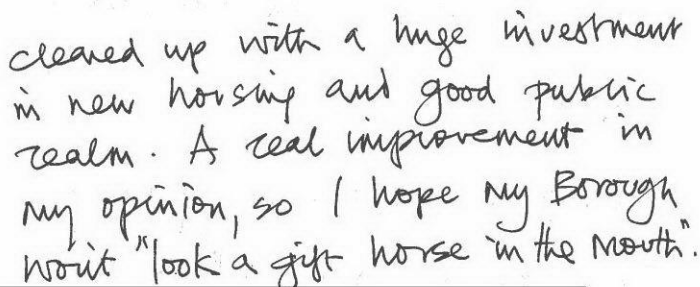 cleaned up with a huge investment
in new housing and good public
realm. A real improvement in
my opinion, so I hope my Borough
won't "look a gift horse in the mouth".